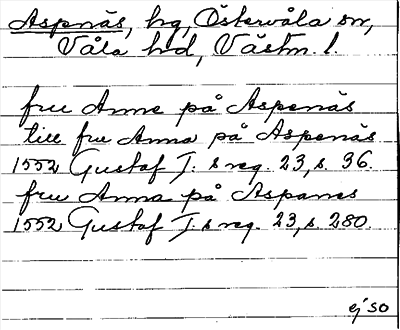 Aspenäs, hg, Östervåla sn,
Våla hd, Västm. l.
fru Anne på Aspenäs
till fru Anna på Aspenäs
1552 Gustaf I:s reg. 23, s. 36.
fru Anna på Aspanes
1552 Gustaf I:s reg. 23, s. 280.
ej SO